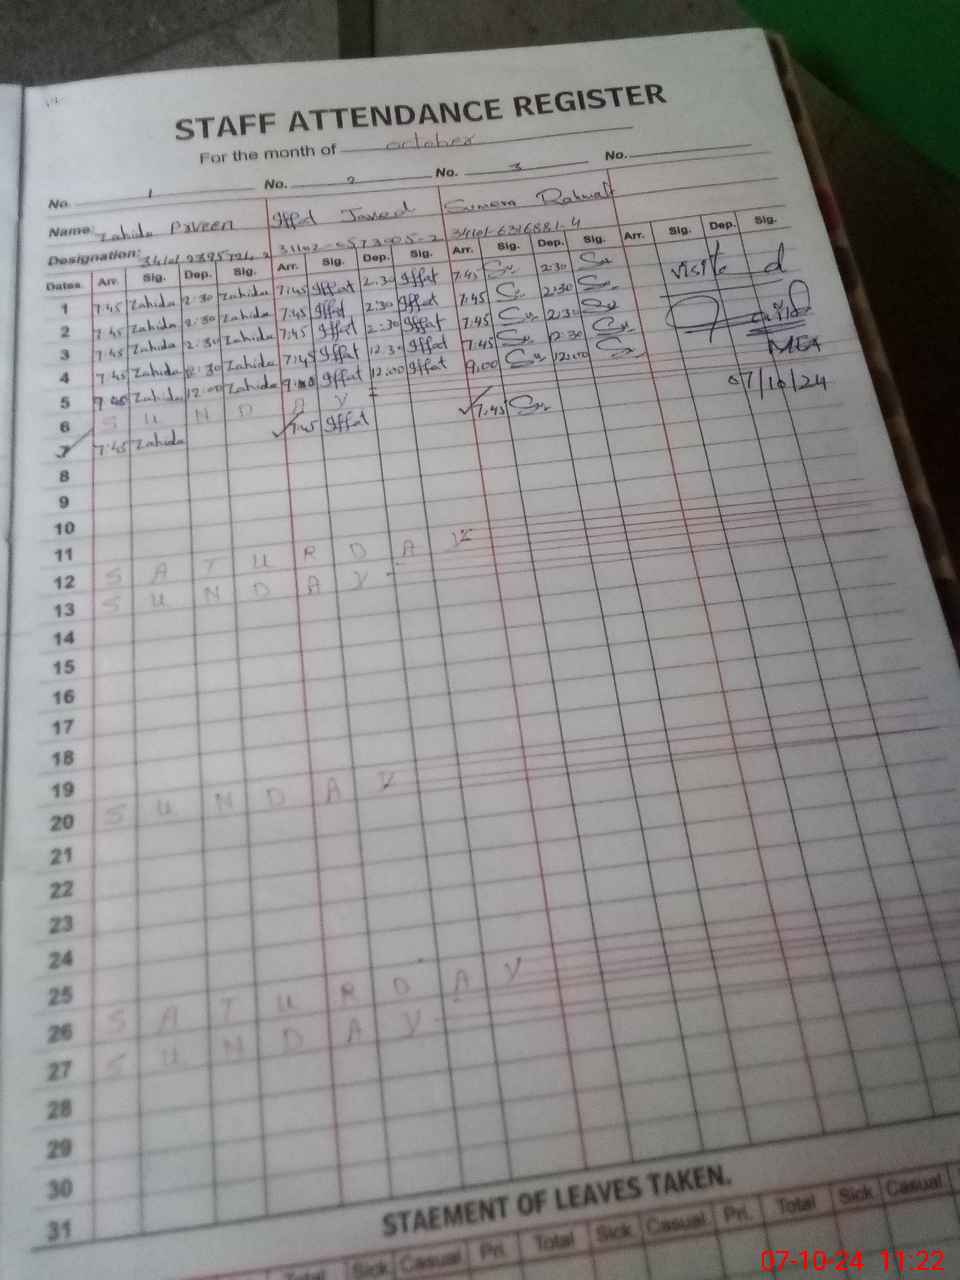 STAFF ATTENDANCE REGISTER
For the month of october
No. 1 No. 2 No. 3 No.
Name: Zahida Praveen Iffat Javeed Sumera Rahmat
Designation: 34101-6316881-4
Dates Arr. Sig. Dep. Sig. Arr. Sig. Dep. Sig. Arr. Sig. Dep. Sig. Arr. Sig. Dep. Sig.
1 7:45 Zahida 2:30 Zahida 7:45 Iffat 2:30 Iffat 7:45 2:30 visite d
2 7:45 Zahida 2:30 Zahida 7:45 Iffat 2:30 Iffat 7:45 2:30
3 7:45 Zahida 2:30 Zahida 7:45 Iffat 2:30 Iffat 7:45 2:30
4 7:45 Zahida 12:30 Zahida 7:45 Iffat 12:30 Iffat 7:45 12:30 MEA
5 9:00 Zahida 12:00 Zahida 9:00 Iffat 12:00 Iffat 9:00 12:00 07/10/24
6 S U N D A Y
7 7:45 Zahida 7:45 Iffat 7:45
8
9
10
11
12 S A T U R D A Y
13 S U N D A Y
14
15
16
17
18
19
20 S U N D A Y
21
22
23
24
25
26 S A T U R D A Y
27 S U N D A Y
28
29
30
31
STAEMENT OF LEAVES TAKEN.
Total Sick Casual Pri. Total Sick Casual Pri. Total Sick Casual
07-10-24 11:22